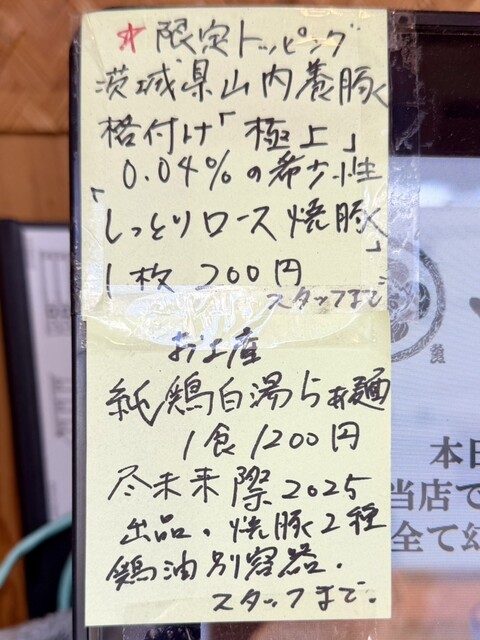 ☆ 限定トッピング
茨城県山内養豚
格付け「極上」
0.04%の希少性
「しっとりロース焼豚」
1枚 200円
スタッフまで
お土産
純鶏白湯らぁ麺
1食1200円
尽未来際2025
出品。焼豚2種
鶏油別容器。
スタッフまで。
本日
当店で
全て